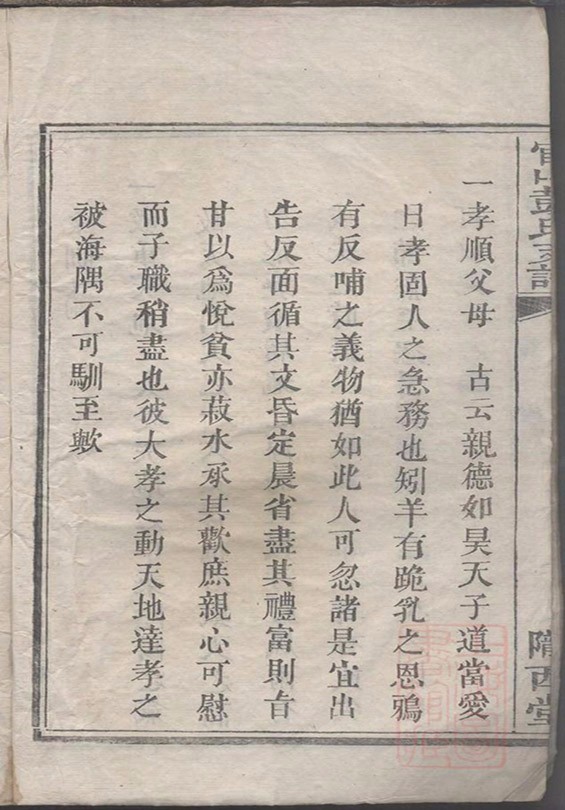 一孝順父母　古云親德如昊天子道當愛
日孝固人之急務也矧羊有跪乳之恩鴉
有反哺之義物猶如此人可忽諸是宜出
告反面循其文昏定晨省盡其禮富則旨
甘以為悅貧亦菽水承其歡庶親心可慰
而子職稍盡也彼大孝之動天地達孝之
被海隅不可馴至歟
彭氏
隴西堂